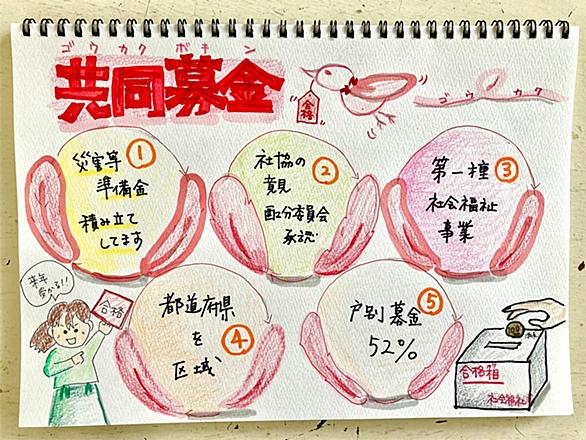 ゴウカクボキン
共同募金
合格
ゴウカク
災害等①
準備金
積み立て
してます
社協の②
意見
配分委員会
承認
第一種③
社会福祉
事業
来年
受かる!!
合格
都道府県
を④
区域
戸別募金⑤
52%
合格箱
社会福祉士